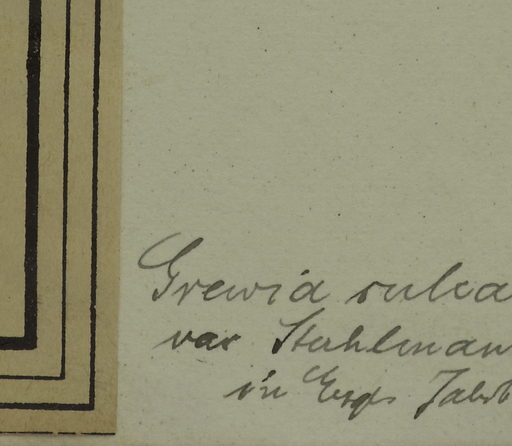 Grewia sulca
var Stuhlman
in Engl. Jahrb